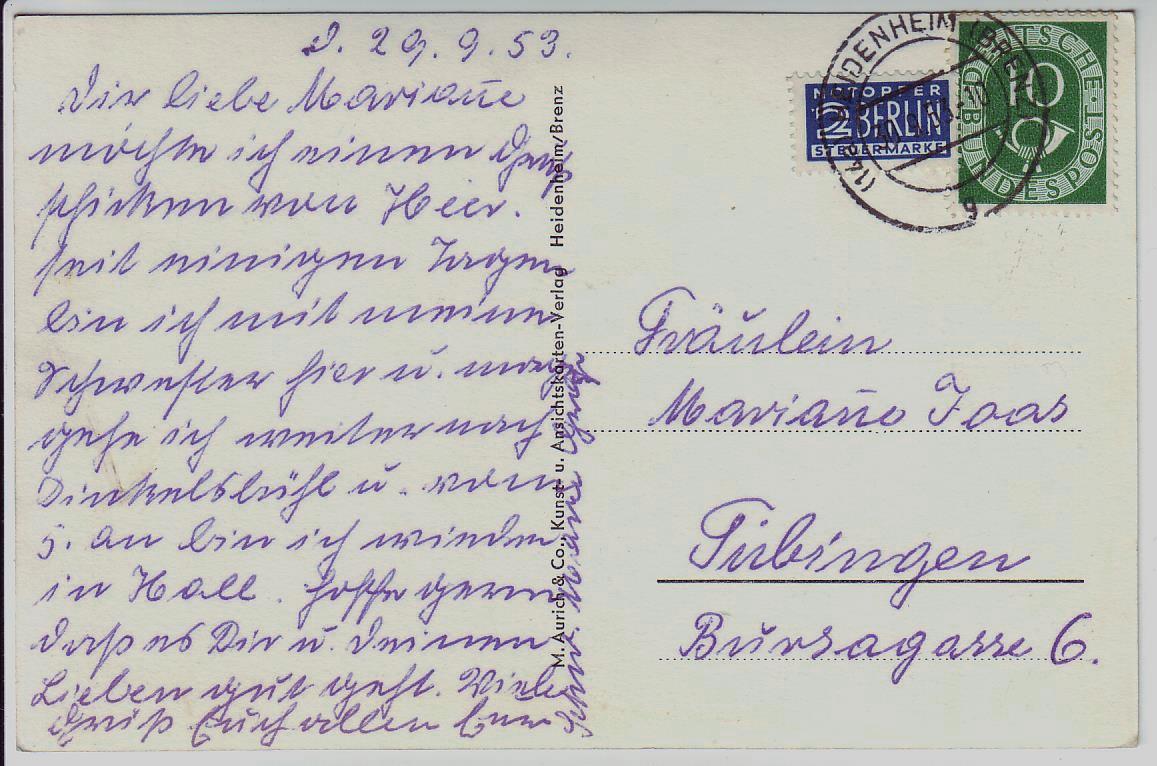 d. 29. 9. 53.
Dir liebe Marianne
möchte ich einen Gruß
schicken von Hier.
seit einigen Tagen
bin ich mit meiner
Schwester hier u. morgen
gehe ich weiter nach
Dinkelsbühl u. vom
5. an bin ich wieder
in Hall. Hoffe gerne
daß es Dir u. Deinen
Lieben gut geht. Viele
Grüß Euch allen Eure
M. Aurich & Co., Kunst- u. Ansichtskarten-Verlag Heidenheim/Brenz
NOTOPFER
2 BERLIN
STEUERMARKE
HEIDENHEIM (BRENZ)
30.9.53.-10
g
DEUTSCHE
BUNDESPOST
10
Fräulein
Marianne Joas
Tübingen
Bursagasse 6.